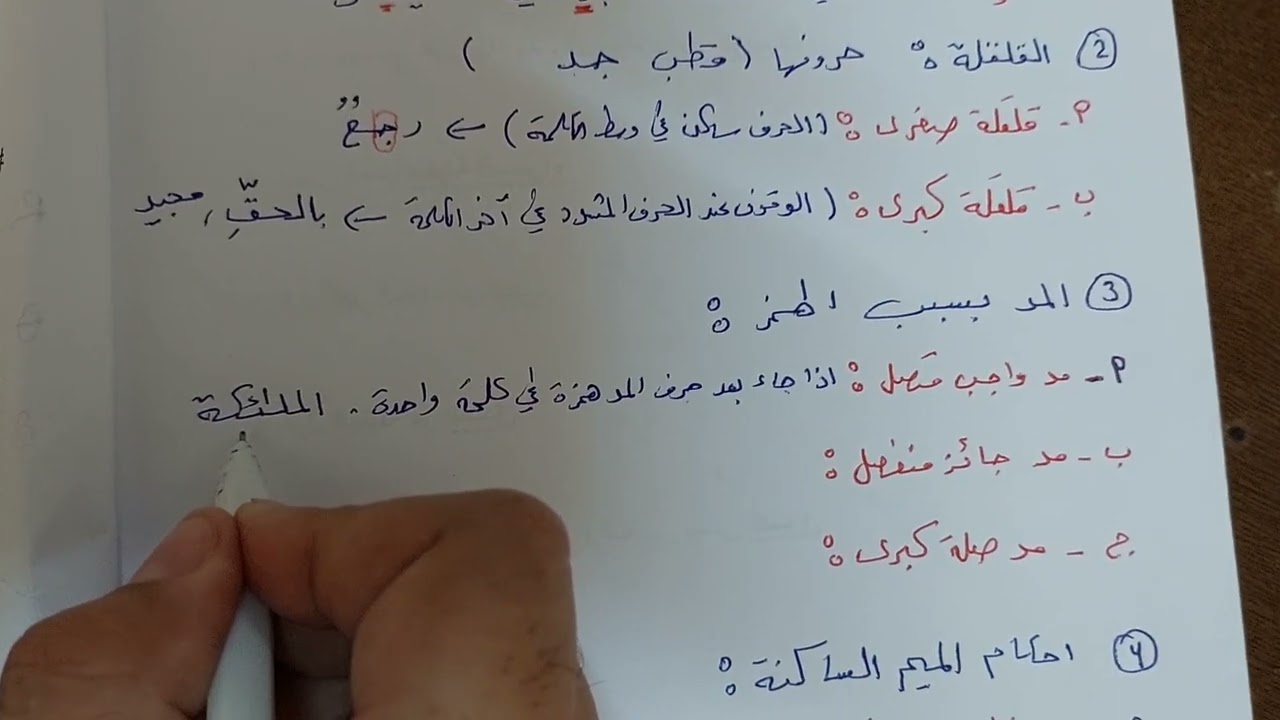 ② القلقلة : حروفها (قطب جد )
أ - قلقلة صغرى : (الحرف ساكن في وسط الكلمة) ← رجعٌ
ب - قلقلة كبرى : ( الوقوف عند الحرف المشدد في آخر الكلمة ← بالحقِّ , مجيد
③ المد بسبب الهمز :
أ - مد واجب متصل : اذا جاء بعد حرف المد همزة في كلمة واحدة . الملائكة
ب - مد جائز منفصل :
ج - مد صلة كبرى :
④ احكام الميم الساكنة :